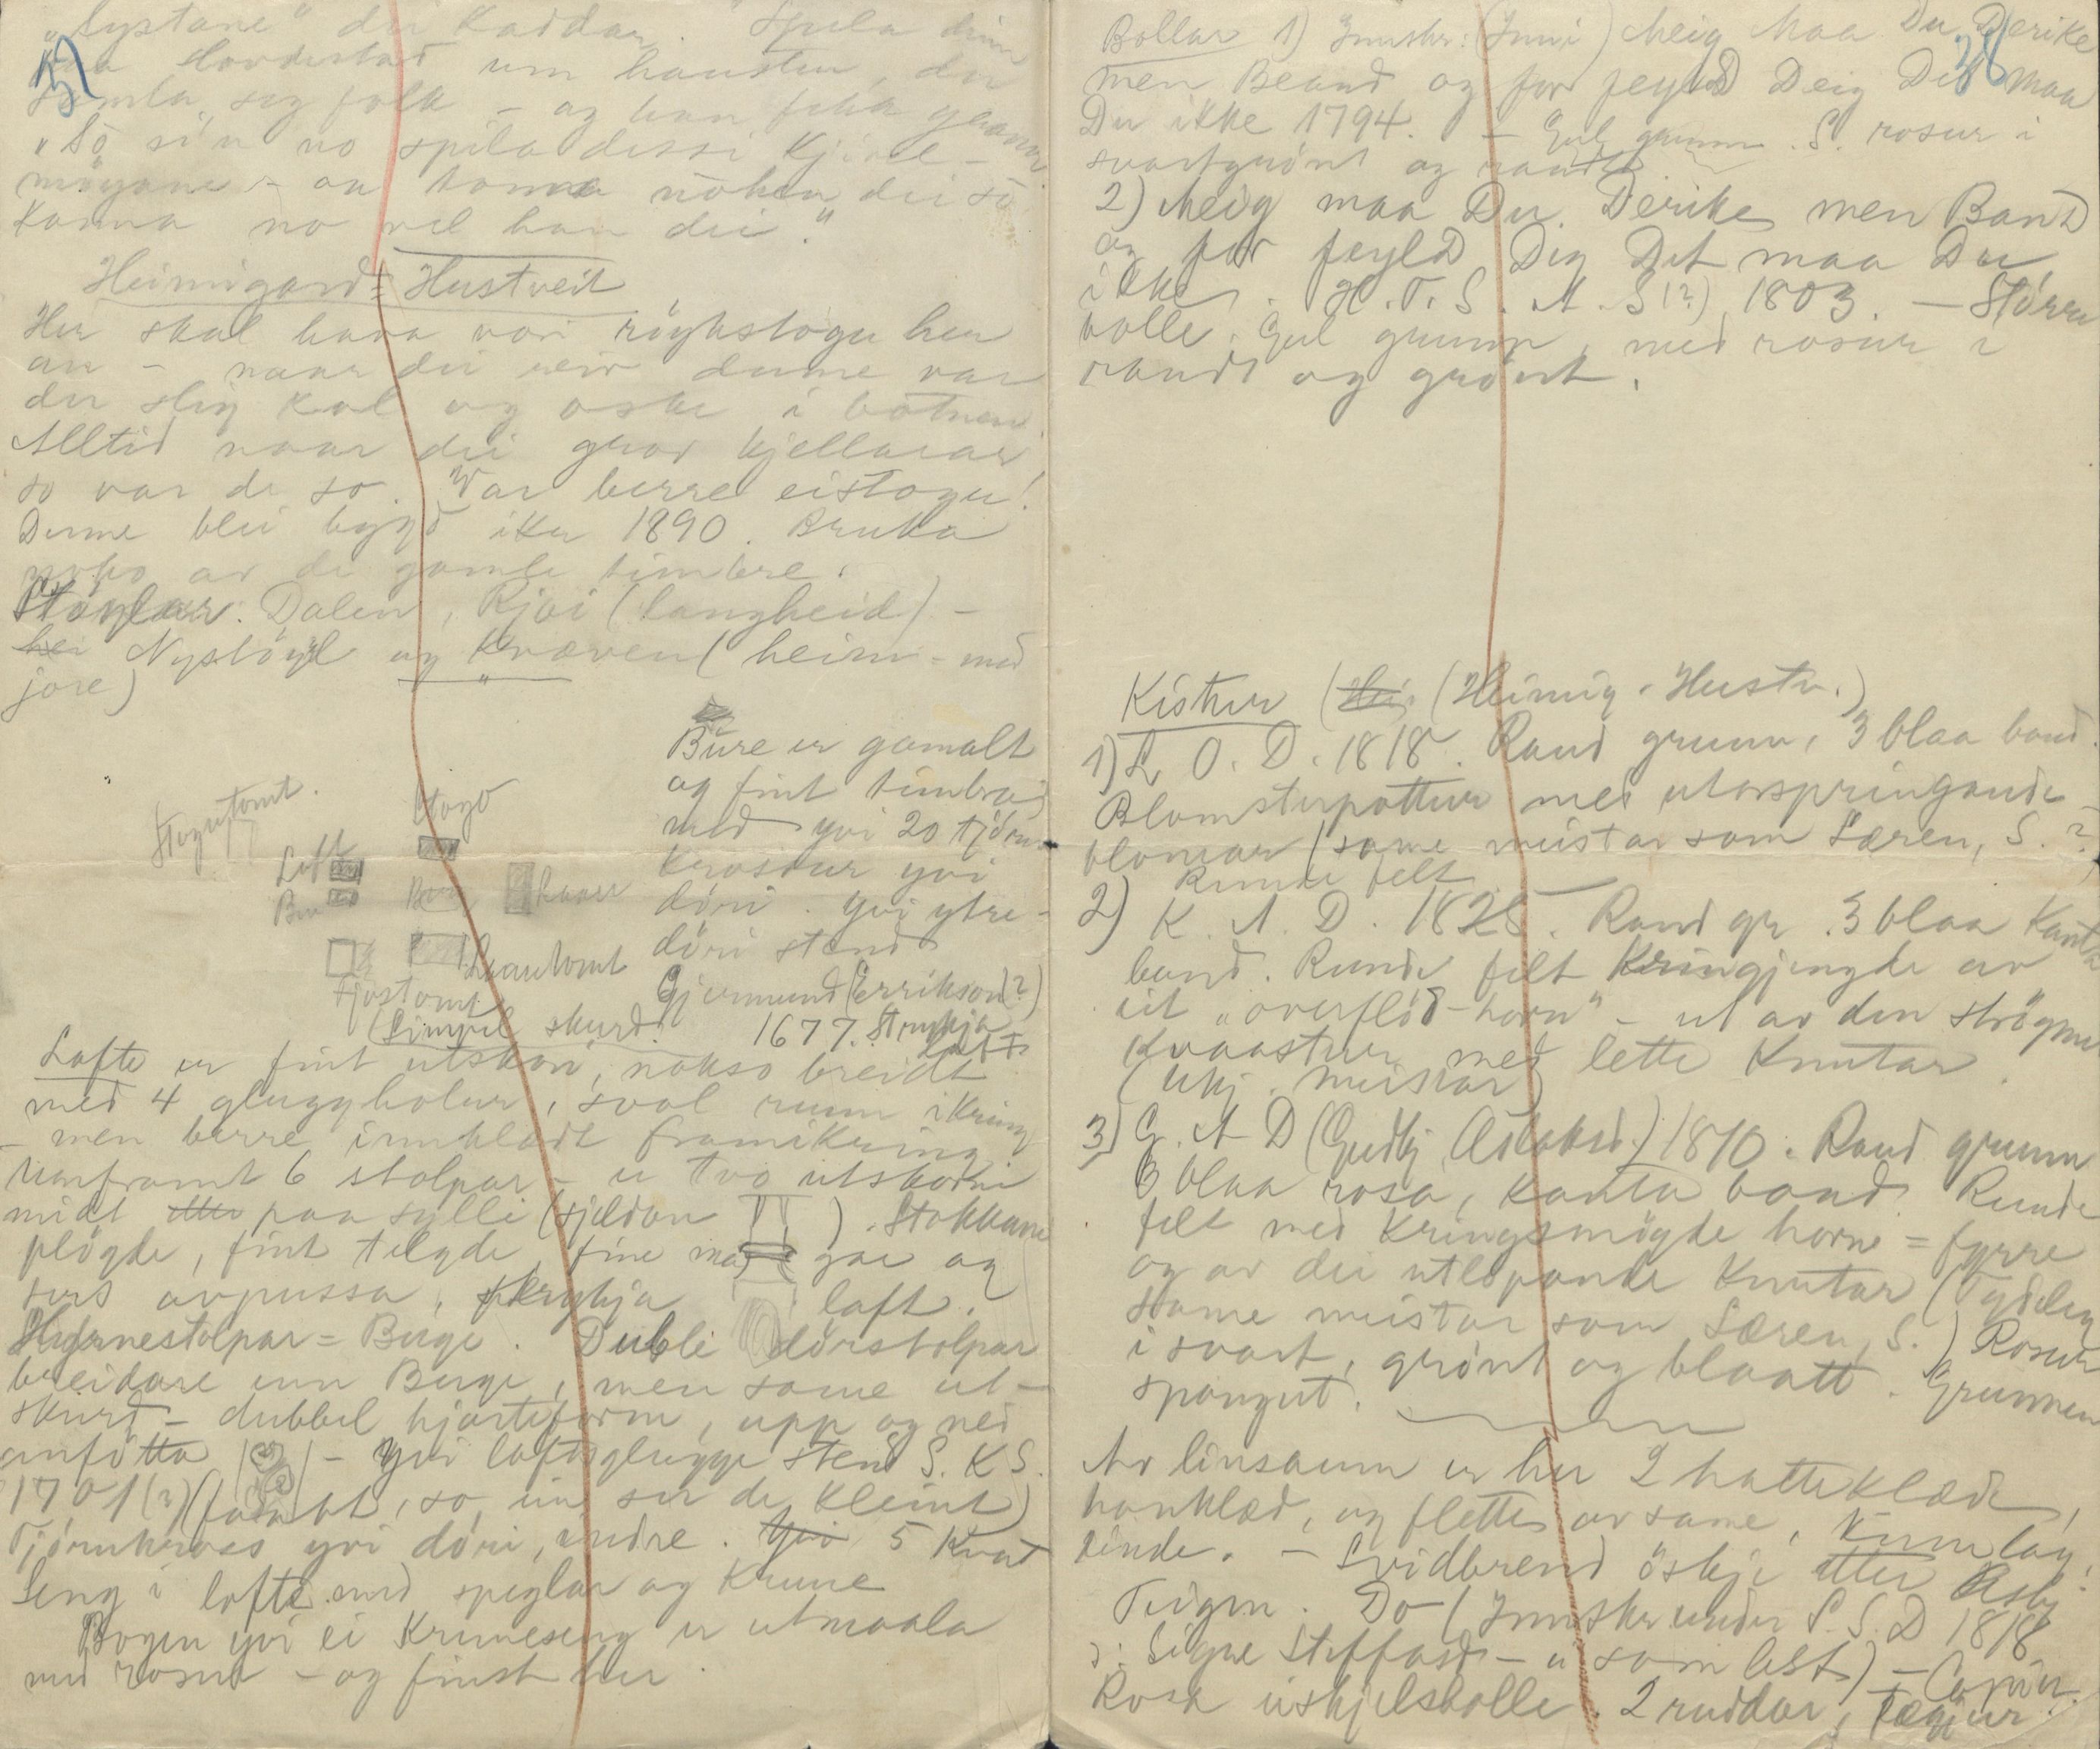 "Systane" der Kaddar. Spela dim
57
Hovdestad um hausten, der
samla seg folk – og han fekk
"So si'n no spila dissi Kjivle-
möyane – an koma nokon dei so
kanna no vel han dei."
Heimigard = Hustveit
Her skal hava vori röykstogu her
an – naar dei reiv dume var
der slig kol og oske i botnen.
Alltid naar dei grov kjellarar
so var de so. Var berre eistogu!
Dume blei bygd ikr 1890. Bruka
noko av de gamle timbre.
Stöylar: Dalen, Rjoi (langheid) –
Nystöyl og Kvæven (heim-med
jore)
Bure er gamalt
og fint timbra
med yvi 20 tjöru-
krossur yvi
döri. Yvi ytre-
döri stend
Gjermund (Errikson?)
1677. Strykja
loft
Stogutomt.
Stogo
Loft
Bu
Bu
Laave
Laavetomt
Fjostomt
(Simpel skurd.
Lofte er fint utskori, nokso breidt
med 4 glugghölur, sval runn ikring
– men berre innklædt framikring
Umframt 6 stolpar – er tvo utskorne
midt paa sylli (sjeldan ). Stokkane
plögde, fint telgde, fine mae gae og
vers avpussa, strykja loft.
Hyrnestolpar = Buge. Duble dörstolpar
breidare enn Buge, men same ut-
skurd – dubbel hjarteform, upp og ned
anfötta – Yvi loftsglugge stend S. K S.
1701 (?) (fadalat, so ein ser de kleint)
Tjörukross yvi döri, indre. 5 Kvat
Seng i lofte med speglar og krune
Bogen yvi ei Kruneseng er utmaala
med rosur – og finst her.
Bollar 1) Innskr: (Inni) Meig Maa Du Derike
38
men Beand og for feyld Deig Det Maa
Du ikke 1794. – Gul grunn. S. rosur i
svartgrönt og raudt
2) Meig maa Du Derike men Band
og for feyld Dig Det maa Du
ikke. H.T.S. A. S(?) 1803. – Större
bolle. Gul grunn, med rosur i
raudt og grönt.
Kistur (Heimig. Hustv.)
1) L. O. D. 1818. Raud grunn, 3 blaa band.
Blomsterpottur med utorspringande
blomar (same meistar som Læren, S.?)
Runde felt
2) K. A. D. 1825. Raud gr. 3 blaa Kanta
band. Runde felt Kringjengde av
eit "overflöd-horn" – ut av den ströyme
kvaastur med lette Knutar.
(Ukj. meistar)
3) G. A D (Gudbj. Aslaksd.) 1810. Raud grunn
3 blaa rosa, kanta band. Runde
felt med Kringsmögde horne = fyrre
og av dei utlöpande Knutar (Tydeleg
same meistar som Læren, S.) Rosur
i svart, grönt og blaatt. Grunnen
spongut.
Av linsaum er her 2 hatteklæde,
honklæd, og flette av same, Kunnlög!
linde. – Svidbrend öskje etter Asbj.
Teigen. Do – (Innskr under S. S. D 1818
ɔ: Signe Steffasd – u som lest) –
Rosa eiskjelsbolle. 2 raddar,